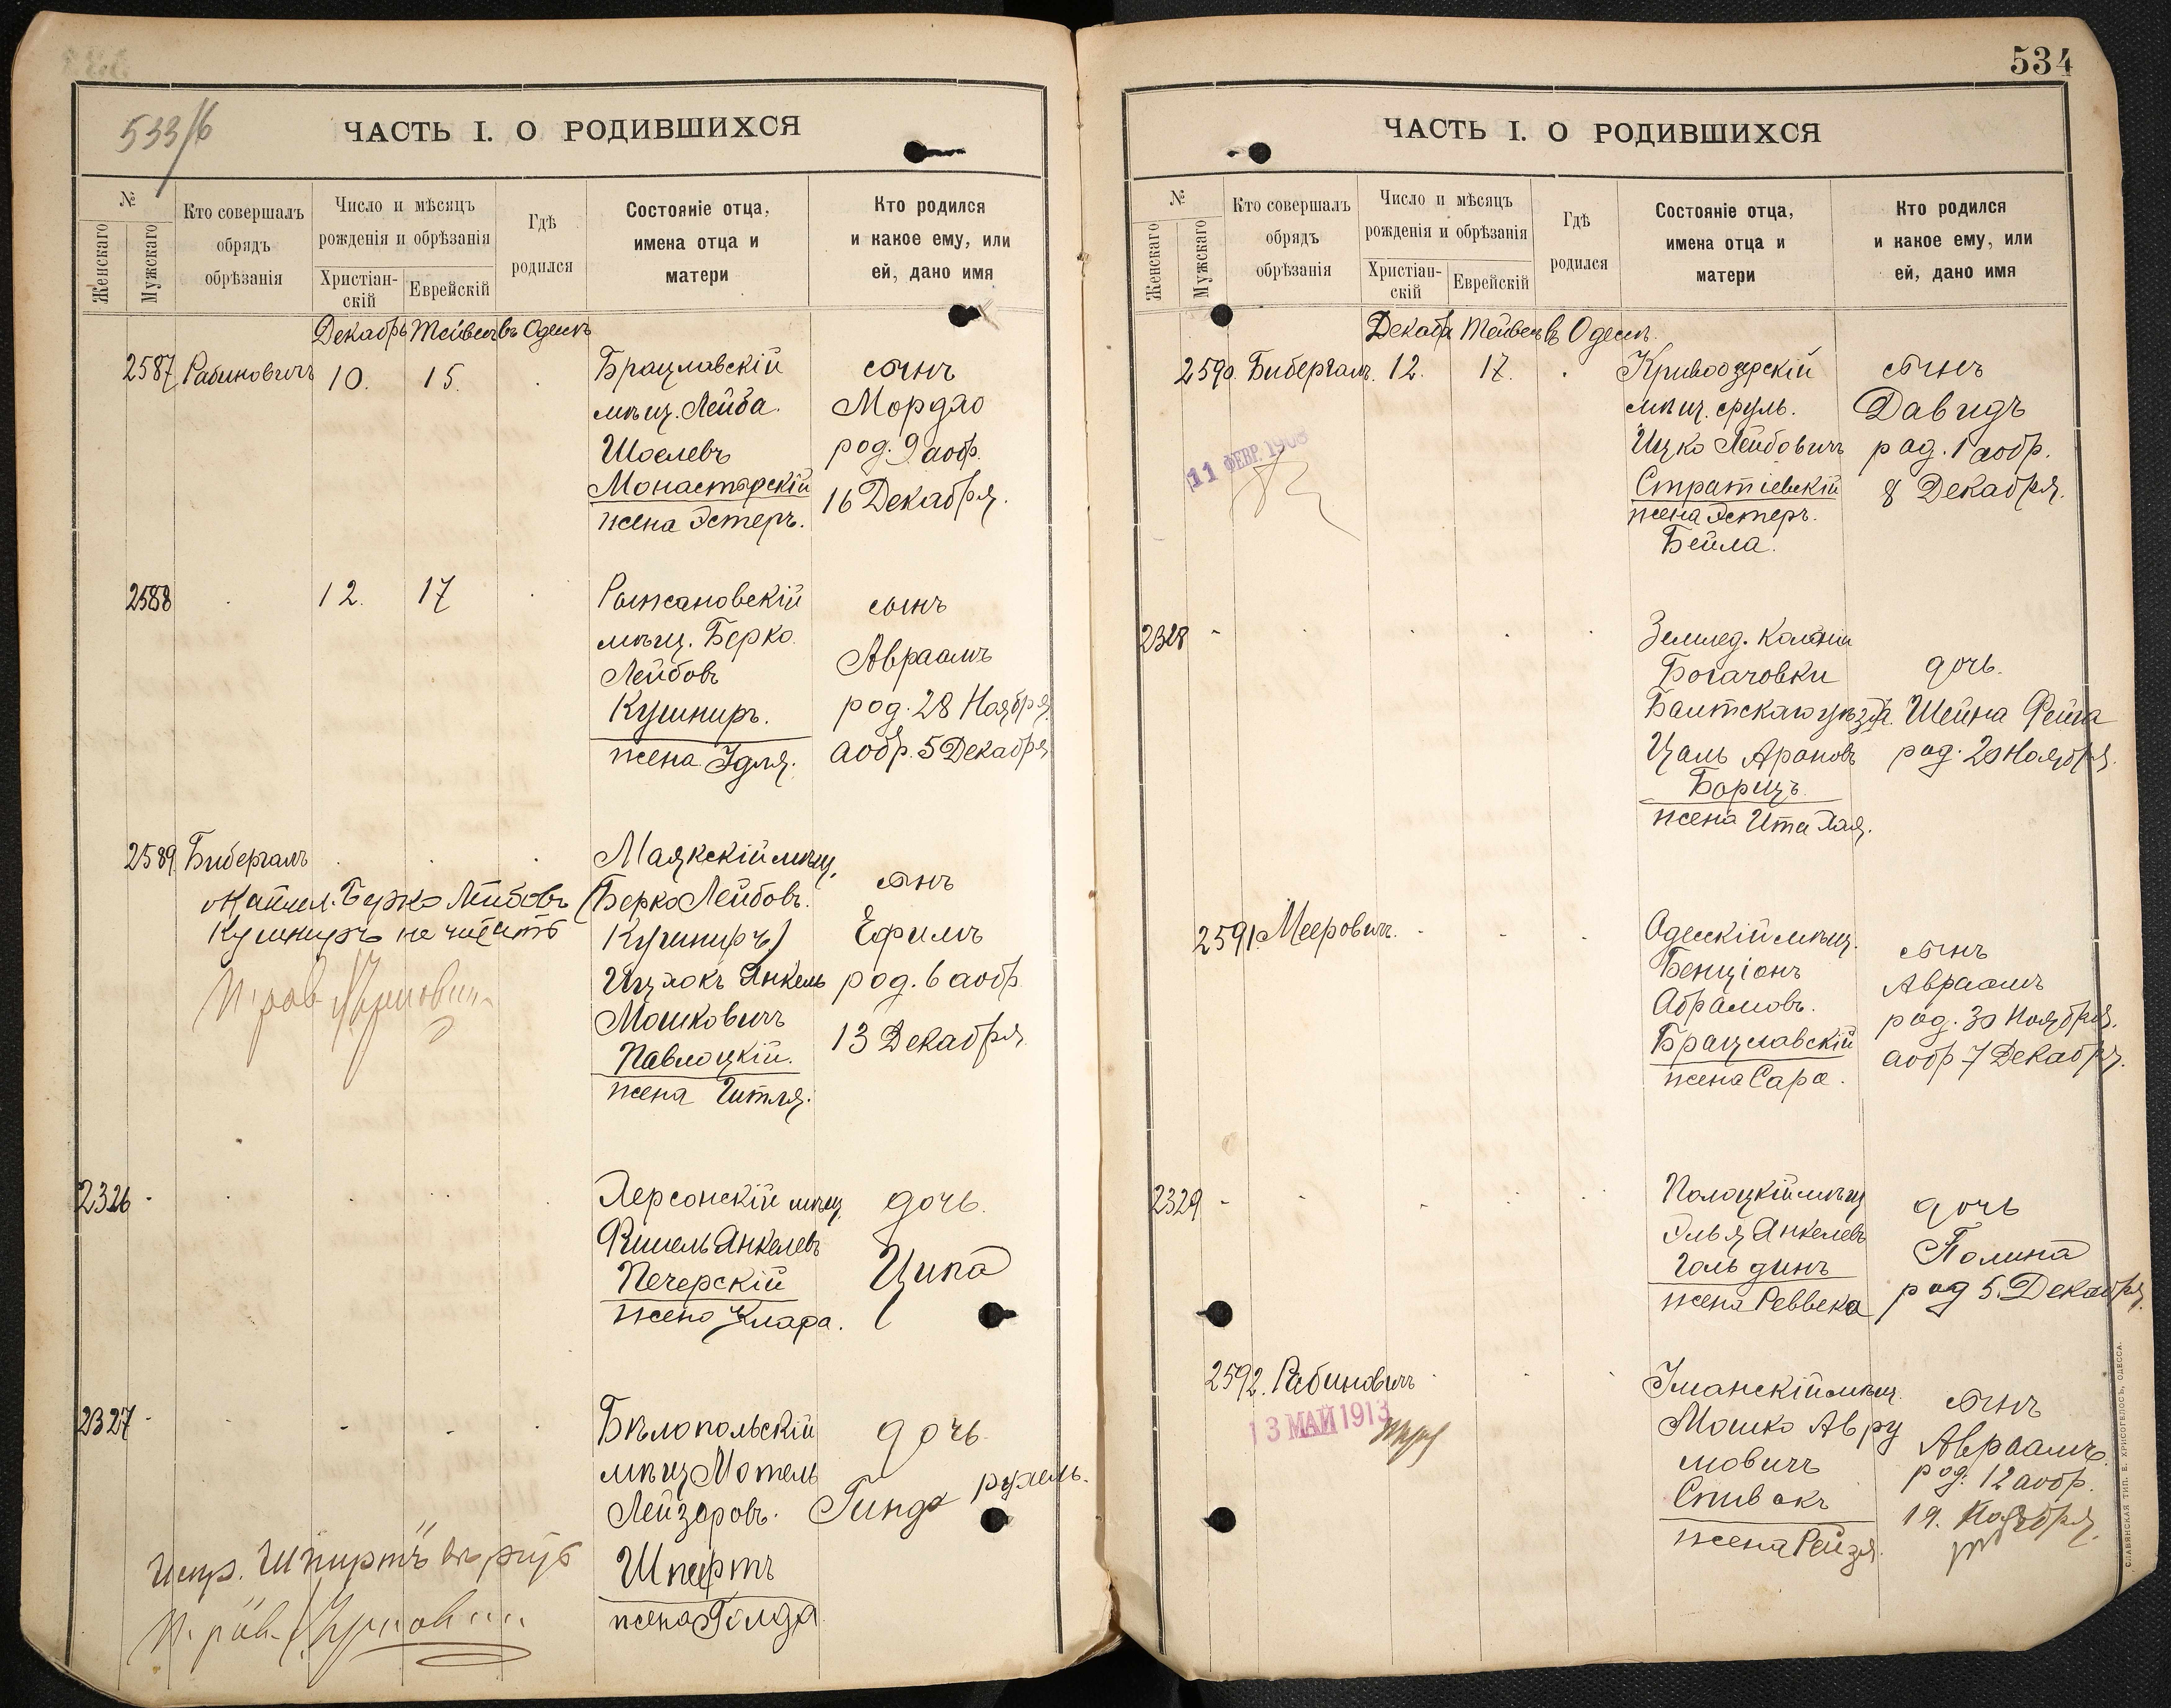 533/б
ЧАСТЬ I. О РОДИВШИХСЯ
№
Женскаго
Мужскаго
Кто совершалъ
обрядъ
обрѣзанія
Число и мѣсяцъ
рожденія и обрѣзанія
Христіан-
скій
Еврейскій
Гдѣ
родился
Состояніе отца,
имена отца и
матери
Кто родился
и какое ему, или
ей, дано имя
Декабрь Тейвесъ въ Одессѣ
2587 Рабиновичъ 10. 15.
Брацлавскій
мѣщ. Лейба
Шоелевъ
Монастырскій
жена Эстеръ.
сынъ
Мордко
род. 9 а обр.
16 Декабря.
2588 12. 17
мѣщ. Берко
Лейбовъ
Кушниръ.
жена Идля.
сынъ
Авраамъ
род. 28 Ноября
а обр. 5 Декабря
2589 Бибергалъ
Берко Лейбовъ
Кушниръ не читать
Маякскій мѣщ.
(Берко Лейбовъ.
Кушниръ)
Ицхокъ Янкель
Мошковичъ
Павлоцкій.
жена Гитля.
сынъ
Ефимъ
род. 6 а обр.
13 Декабря
2326
Херсонскій мѣщ.
Фишель Янкелевъ
Печерскій
жена Клара.
дочь.
Ципа
2327
Бѣлопольскій
мѣщ. Мотель
Лейзеровъ.
Шпиртъ
жена Голда
дочь
Гинда рухель.
Испр. "Шпиртъ" вѣрую
534
ЧАСТЬ I. О РОДИВШИХСЯ
№
Женскаго
Мужскаго
Кто совершалъ
обрядъ
обрѣзанія
Число и мѣсяцъ
рожденія и обрѣзанія
Христіан-
скій
Еврейскій
Гдѣ
родился
Состояніе отца,
имена отца и
матери
Кто родился
и какое ему, или
ей, дано имя
Декабрь Тейвесъ въ Одессѣ.
2590. Бибергалъ. 12. 17.
11 ФЕВР. 1908
Кривоозерскій
мѣщ. Сруль.
Ицко Лейбовичъ
Стратіевскій
жена Эстеръ.
Бейла.
сынъ
Давидъ
род. 1 а обр.
8 Декабря.
2328
Землед. Колоніи
Богачовки
Балтскаго уѣзда.
Цаль Ароновъ
Борицъ
жена Ита Хая.
дочь.
Шейна Фейга
род. 20 Ноября.
2591. Мееровичъ.
Одесскій мѣщ.
Бенціонъ
Абрамовъ.
Брацлавскій
жена Сара.
сынъ
Авраамъ
род. 30 Ноября.
а обр 7 Декабря.
2329
Полоцкій мѣщ
Элья Янкелевъ
Гольдинъ
жена Реввека
дочь
Полина
род 5. Декабря.
2592. Рабиновичъ
13 МАЙ 1913
Уманскій мѣщ.
Мошко Авру
мовичъ
Спивакъ
жена Рейзя.
сынъ
Авраамъ.
род. 12 а обр.
19.
СЛАВЯНСКАЯ ТИП. Е. ХРИСОГЕЛОСЪ, ОДЕССА.